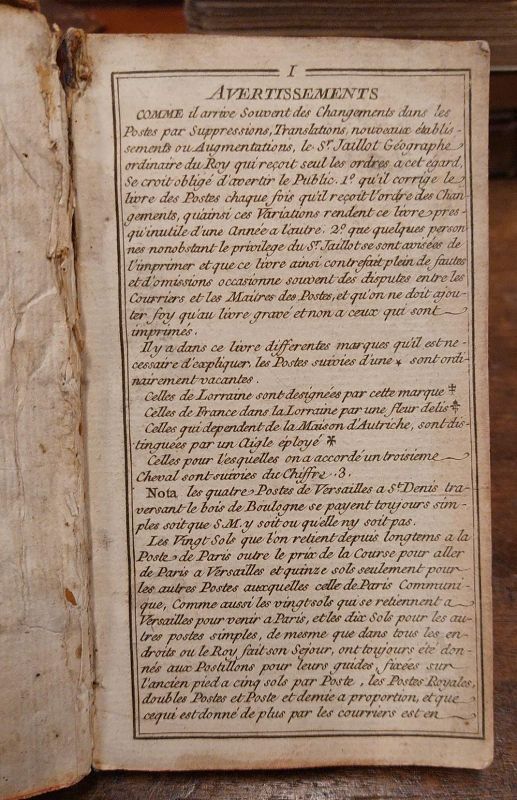 1
AVERTISSEMENTS
COMME il arrive Souvent des Changements dans les
Postes par Suppressions, Translations, nouveaux établis-
sements ou Augmentations, le Sr. Jaillot Géographe
ordinaire du Roy qui reçoit seul les ordres a cet égard,
Se croit obligé d'avertir le Public. 1º. qu'il corrige le
livre des Postes chaque fois qu'il reçoit l'ordre des Chan
gements, qu'ainsi ces Variations rendent ce livre pres-
qu'inutile d'une Année a l'autre. 2º. que quelques person
nes nonobstant le privilege du Sr. Jaillot se sont avisées de
l'imprimer et que ce livre ainsi contrefait plein de fautes
et d'omissions occasionne souvent des disputes entre les
Courriers et les Maitres des Postes, et qu'on ne doit ajou-
ter foy qu'au livre gravé et non a ceux qui sont
imprimés.
Il y a dans ce livre differentes marques qu'il est ne-
cessaire d'expliquer. les Postes suivies d'une * sont ordi-
nairement vacantes.
Celles de Lorraine sont designées par cette marque ‡
Celles de France dans la Lorraine par une fleur delis ⚜
Celles qui dependent de la Maison d'Autriche, sont dis-
tinguées par un Aigle éployé
Celles pour l'esquelles on a accordé un troisieme
Cheval sont suivies du Chiffre .3.
Nota les quatre Postes de Versailles a St. Denis tra-
versant le bois de Boulogne se payent toujours sim-
ples soit que S.M. y soit ou qu'elle ny soit pas.
Les Vingt Sols que l'on retient depuis longtems a la
Poste de Paris outre le prix de la Course pour aller
de Paris a Versailles et quinze sols seulement pour
les autres Postes auxquelles celle de Paris Communi
que, Comme aussi les vingt sols qui se retiennent a
Versailles pour venir a Paris, et les dix Sols pour les au-
tres postes simples, de mesme que dans tous les en-
droits ou le Roy fait son Sejour, ont toujours été don-
nés aux Postillons pour leurs guides, fixées sur
l'ancien pied a cinq sols par Poste, les Postes Royales,
doubles Postes et Poste et demie a proportion, et que
ce qui est donné de plus par les courriers est en